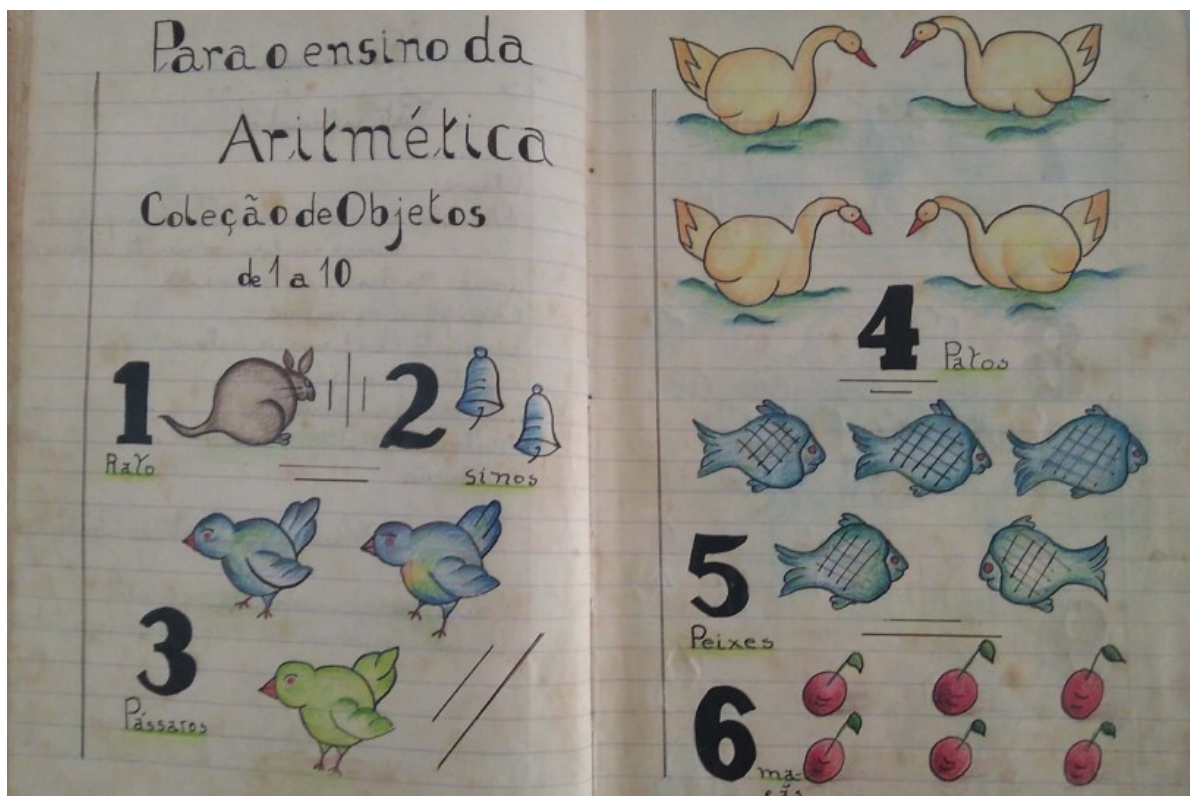 Para o ensino da
Aritmética
Coleção de Objetos
de 1 a 10
1
Rato
2
sinos
3
Pássaros
4
Patos
5
Peixes
6
ma-
çãs